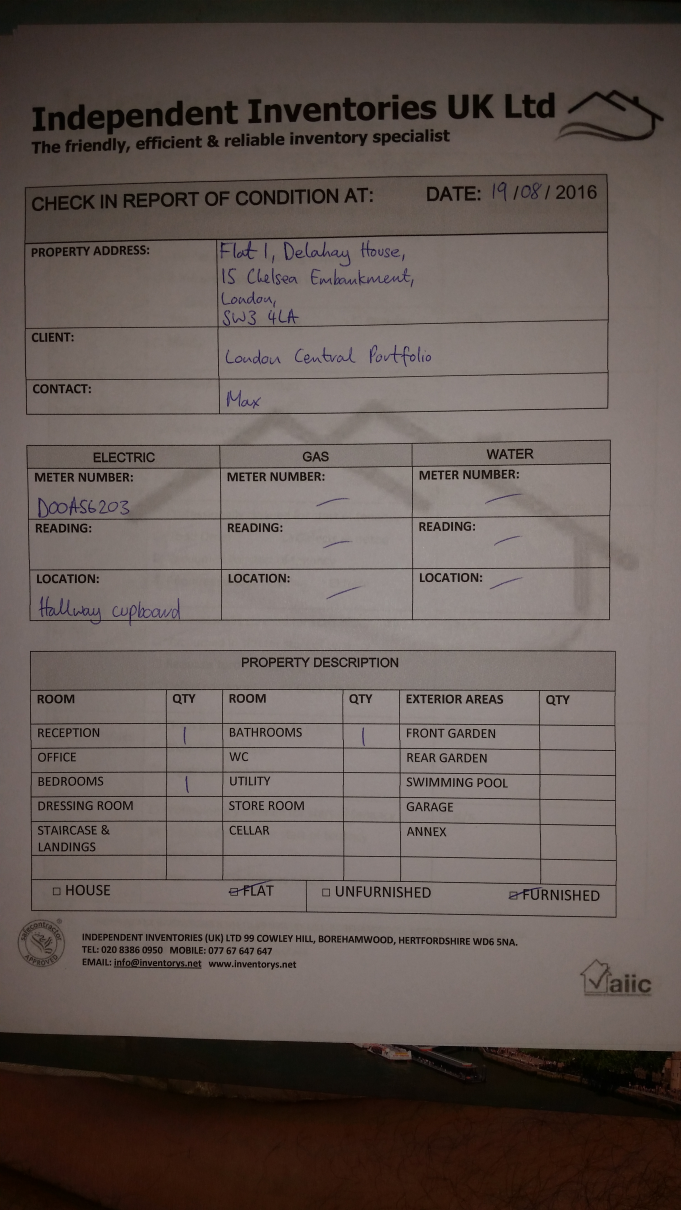 Independent Inventories UK Ltd
The friendly, efficient & reliable inventory specialist
CHECK IN REPORT OF CONDITION AT: DATE: 19/08/2016
PROPERTY ADDRESS: Flat 1, Delahay House,
15 Chelsea Embankment,
London,
SW3 4LA
CLIENT: London Central Portfolio
CONTACT: Max
ELECTRIC GAS WATER
METER NUMBER: METER NUMBER: METER NUMBER:
D00A56203
READING: READING: READING:
LOCATION: LOCATION: LOCATION:
Hallway cupboard
PROPERTY DESCRIPTION
ROOM QTY ROOM QTY EXTERIOR AREAS QTY
RECEPTION 1 BATHROOMS 1 FRONT GARDEN
OFFICE WC REAR GARDEN
BEDROOMS 1 UTILITY SWIMMING POOL
DRESSING ROOM STORE ROOM GARAGE
STAIRCASE & CELLAR ANNEX
LANDINGS
HOUSE FLAT UNFURNISHED FURNISHED
safecontractor
APPROVED
INDEPENDENT INVENTORIES (UK) LTD 99 COWLEY HILL, BOREHAMWOOD, HERTFORDSHIRE WD6 5NA.
TEL: 020 8386 0950 MOBILE: 077 67 647 647
EMAIL: info@inventorys.net www.inventorys.net
aiic